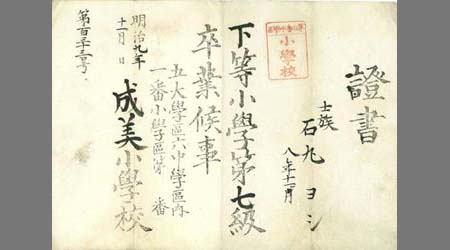 證書
士族
石丸ヨシ
八年十一月
小學校
下等小學第七級
卒業候事
五大學區六中學區内
一番小學區第 番
明治九年
十一月 日
成美小學校